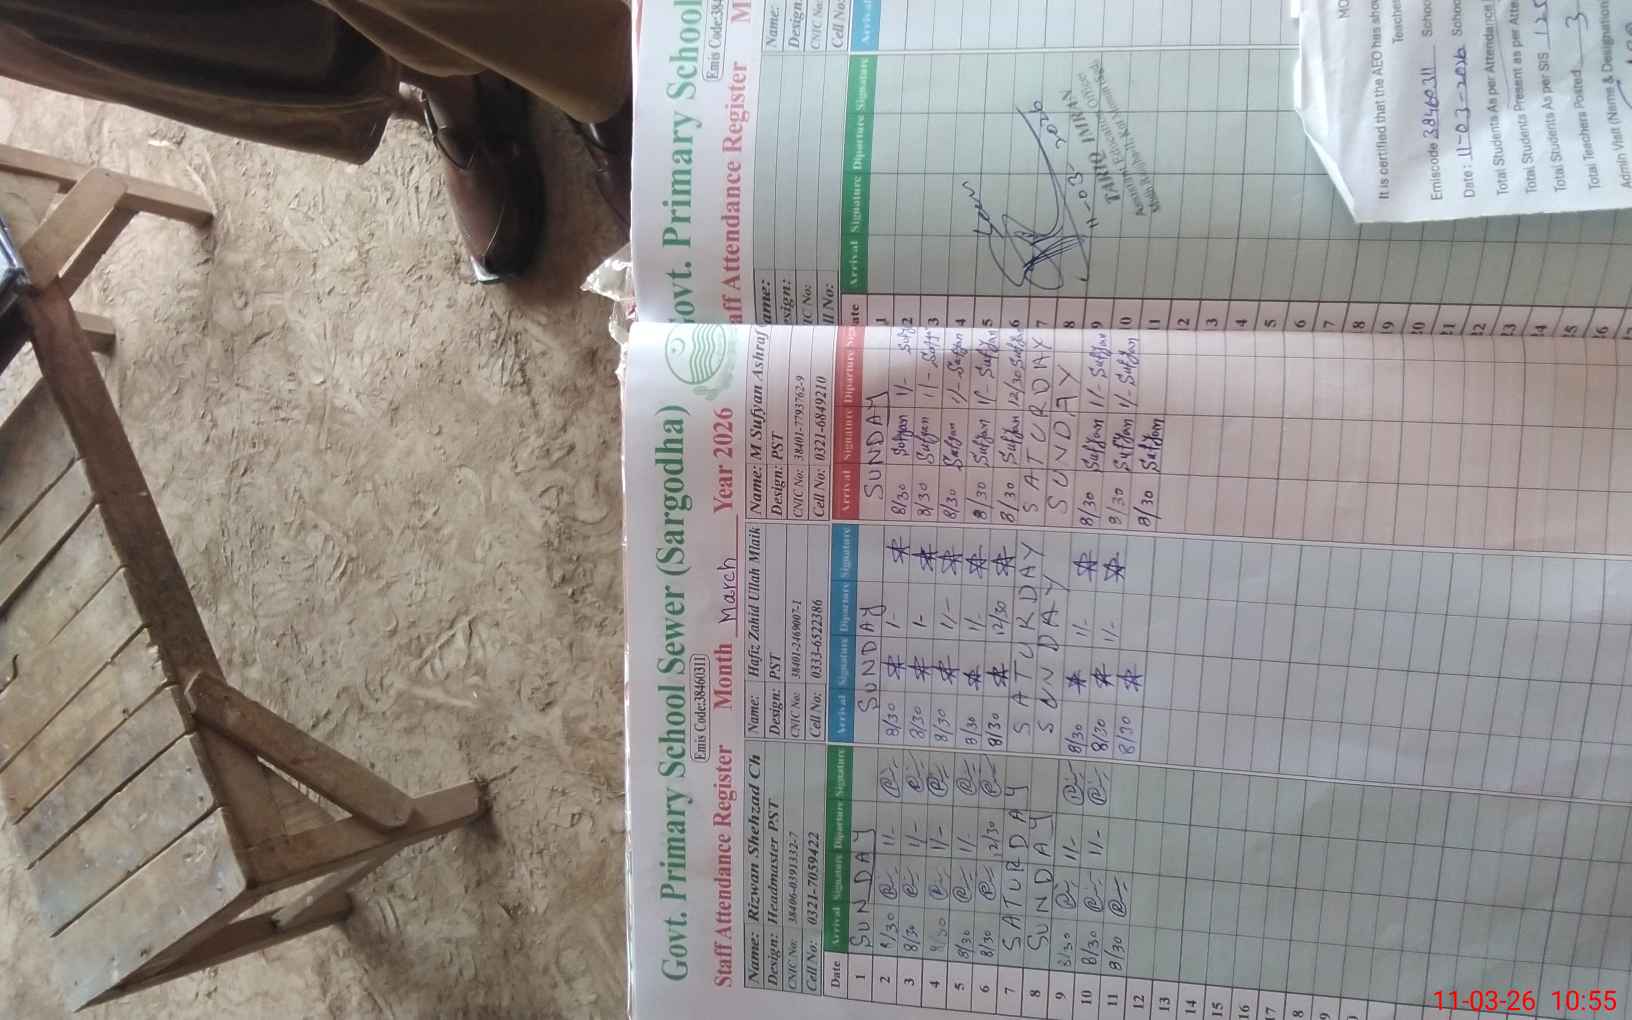 Govt. Primary School Sewer (Sargodha)
Emis Code:38460311
Staff Attendance Register Month March Year 2026
Name: Rizwan Shehzad Ch Name: Hafiz Zahid Ullah Mlaik Name: M Sufyan Ashraf
Design: Headmaster PST Design: PST Design: PST
CNIC No: 38406-0391332-7 CNIC No: 38401-2469007-1 CNIC No: 38401-7793762-9
Cell No: 0321-7059422 Cell No: 0333-6522386 Cell No: 0321-6849210
Date Arrival Signature Diparture Signature Arrival Signature Diparture Signature Arrival Signature Diparture
1 SUNDAY SUNDAY SUNDAY
2 8/30 1/- 8/30 1- 8/30 Sufyan 1/-
3 8/30 1/- 8/30 1- 8/30 Sufyan 1/- Sufyan
4 8/30 1/- 8/30 1/- 8/30 Sufyan 1/- Sufyan
5 8/30 1/- 8/30 1/- 8/30 Sufyan 1/- Sufyan
6 8/30 12/30 8/30 12/30 8/30 Sufyan 12/30 Sufyan
7 SATURDAY SATURDAY SATURDAY
8 SUNDAY SUNDAY SUNDAY
9 8/30 1/- 8/30 1/- 8/30 Sufyan 1/- Sufyan
10 8/30 1/- 8/30 1/- 8/30 Sufyan 1/- Sufyan
11 8/30 8/30 8/30 Sufyan
12
13
14
15
16
17
Govt. Primary School
Emis Code:384
Staff Attendance Register M
Name: Name:
Design: Design:
CNIC No: CNIC No:
Cell No: Cell No:
Date Arrival Signature Diparture Signature Arrival Signature Diparture Signature Arrival
1
2
3
4
5
6
7
8
9
10
11
12
13
14
15
16
11-03-2026
TARIQ IMRAN
Assistant Education Officer
It is certified that the AEO has
Emiscode 38460311 School
Date: 11-03-2026 School
Total Students As per Attendance
Total Students Present as per Atte
Total Students As per SIS 125
Total Teachers Posted 3
Admin Visit (Name & Designation
11-03-26 10:55